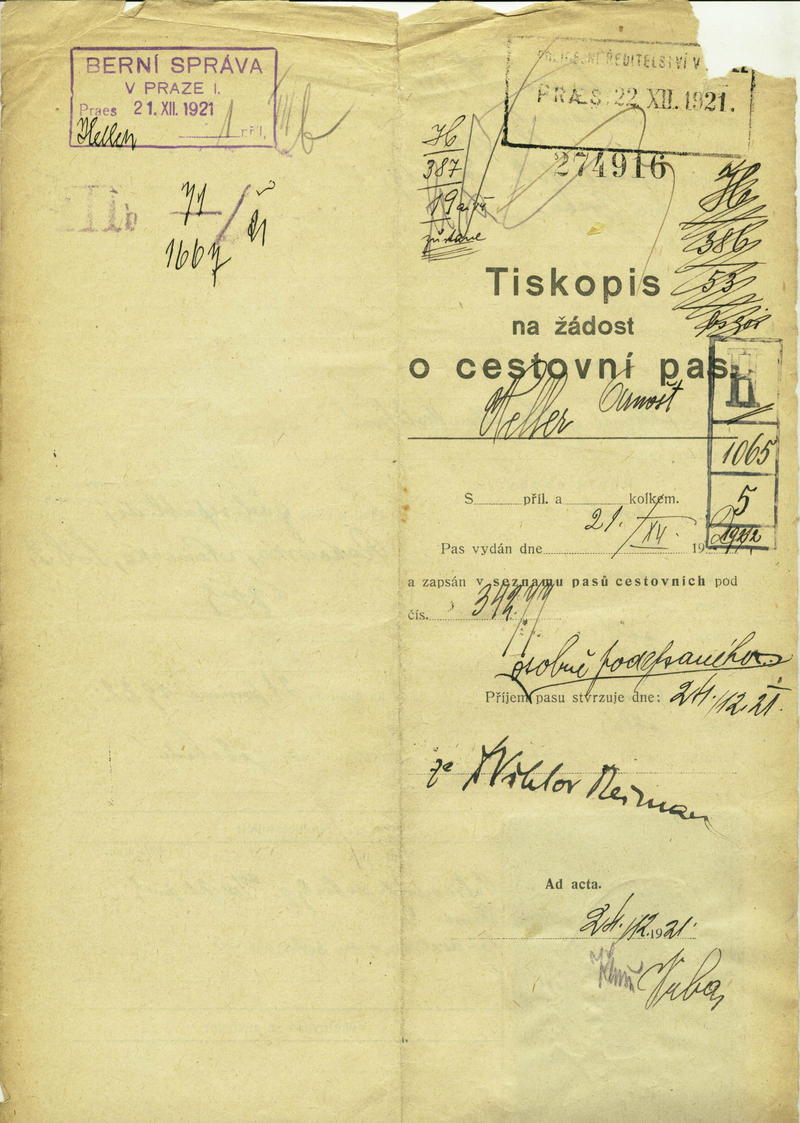 BERNÍ SPRÁVA
V PRAZE I.
Praes 21. XII. 1921
Heller 1 příl.
III b
77
1667
ŘEDITELSTVÍ V
PRÆS. 22. XII. 1921.
274916
H
387
19
zůstane
H
386
53
Tiskopis
na žádost
o cestovní pas.
Heller Arnošt
H
1065
5
1922
S příl. a kolkem.
Pas vydán dne 21./XII. 19
a zapsán v seznamu pasů cestovních pod
čís. 34277
osobně podepsaného
Příjem pasu stvrzuje dne: 24./12. 21.
za Viktor Neiman
Ad acta.
24./12. 1921.
Vrba